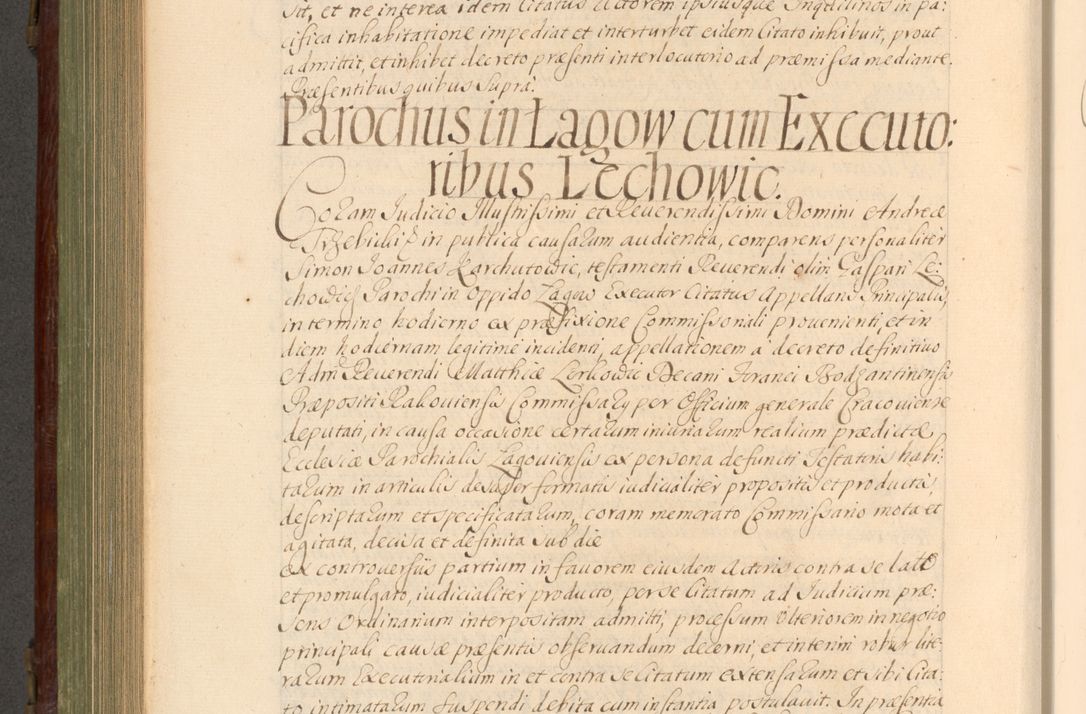 sit, et ne interea idem Citatus Actorem ipsiusque Inquilinos in pa:
cifica inhabitatione impediat et interturbet eidem Citato inhibuit, prout
admittit, et inhibet decreto præsenti interlocutorio ad præmissa mediante.
Præsentibus quibus Supra.
Parochus in Łagow cum Executo:
ribus Lechowic.
Coram Iudicio Illustrissimi et Reverendissimi Domini Andreæ
Trzebicki in publica causarum audientia, comparens personaliter
Simon Ioannes Karchutowic, testamenti Reverendi olim Gaspari Le:
chowicz Parochi in Oppido Łagow Executor Citatus Appellans Principalis,
in termino hodierno ex præfixione Commissoriali provenienti, et in
diem hodiernam legitime incidenti, appellationem a decreto definitivo
Adm Reverendi Matthiæ Lerkowic Decani Foranei Bodzantinensis
Præpositi Rakoviensis Commissary per Officium generale Cracoviense
deputati, in causa occasione certarum iniuriarum realium prædictæ
Ecclesiæ Parochialis Łagoviensis ex persona defuncti Testatoris habi:
tarum in articulis desuper formatis iudicialiter propositis et productis,
descriptarum et specificatarum, coram memorato Commissario mota et
agitata, decisa et definita sub die
ex controversiis partium in favorem eiusdem Actoris contra se lato
et promulgato, iudicialiter producto, per se Citatum ad Iudicium præ:
sens Ordinarium interpositam admitti, processum Ulteriorem in negotio
principali causæ præsentis observandum decerni, et interim robur lite:
rarum Executorialium in et contra se Citatum extensarum et sibi Cita:
to intimatarum suspendi debita cum instantia postulavit. In præsentia